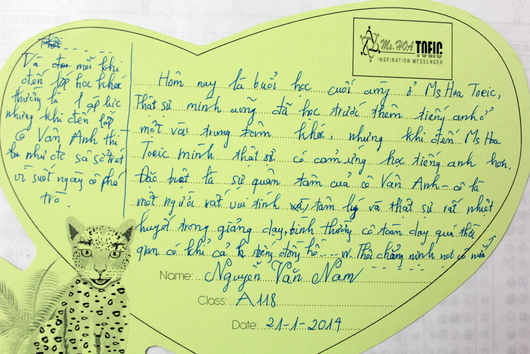 Ms. HOA TOEIC
INSPIRATION MESSENGER
Và mỗi khi
đến lớp học khác
thường là 1 áp lực
nhưng khi đến lớp
cô Vân Anh thì
như đc
vì suốt ngày cô phá
trò.
Hôm nay là buổi học cuối cùng ở Ms Hoa Toeic,
Thật sự mình cũng đã học trước thêm tiếng anh ở
một vài trung tâm khác, nhưng khi đến Ms Hoa
Toeic mình thật sự có cảm ứng học tiếng anh hơn,
Đặc biệt là sự quan tâm của cô Vân Anh - cô là
một người rất vui tính, tâm lý và thật sự rất nhiệt
huyết trong giảng dạy, bình thường cô toàn dạy quá thời
gian có khi cả ½ tiếng đồng hồ ... Thôi chẳng mình nói cô nữa
Name: Nguyễn Văn Nam
Class: A118
Date: 21-1-2014